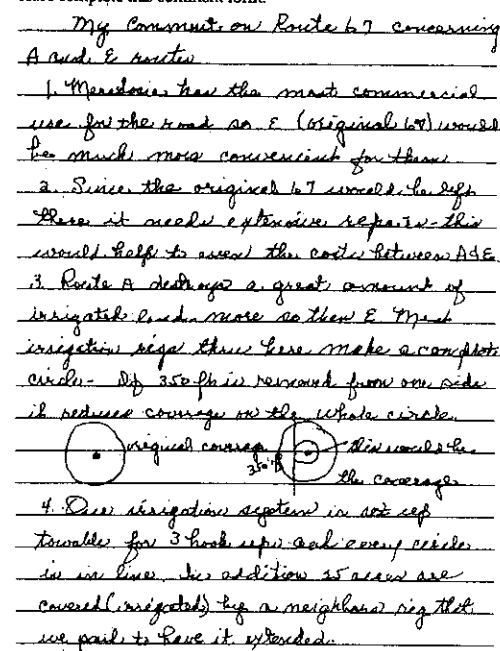 My Comments on Route 67 concerning
A and E routes
1. Meredosia has the most commercial
use for the road so E (original 67) would
be much more convenient for them
2. Since the original 67 would be left
there it needs extensive repairs - this
would help to even the costs between A & E.
3. Route A destroys a great amount of
irrigated land more so than E Most
irrigation rigs thru here make a complete
circle - If 350 ft is removed from one side
it reduces coverage on the whole circle.
original coverage
350 ft
this would be
the coverage
4. Our irrigation system is set up
towable for 3 hook ups and every circle
is in line. In addition 25 acres are
covered (irrigated) by a neighbors rig that
we paid to have it extended.